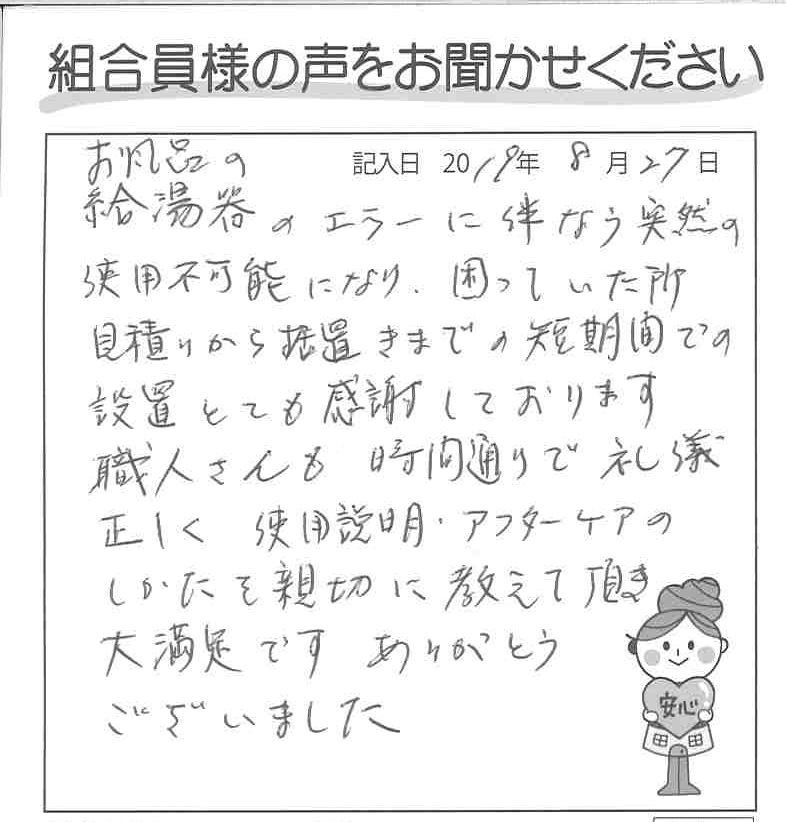 組合員様の声をお聞かせください
記入日 2019年 8月27日
お風呂の
給湯器のエラーに伴なう突然の
使用不可能になり、困っていた所
見積りから据置きまでの短期間での
設置とても感謝しております
職人さんも 時間通りで 礼儀
正しく 使用説明・アフターケアの
しかたを親切に教えて頂き
大満足です ありがとう
ございました
安心